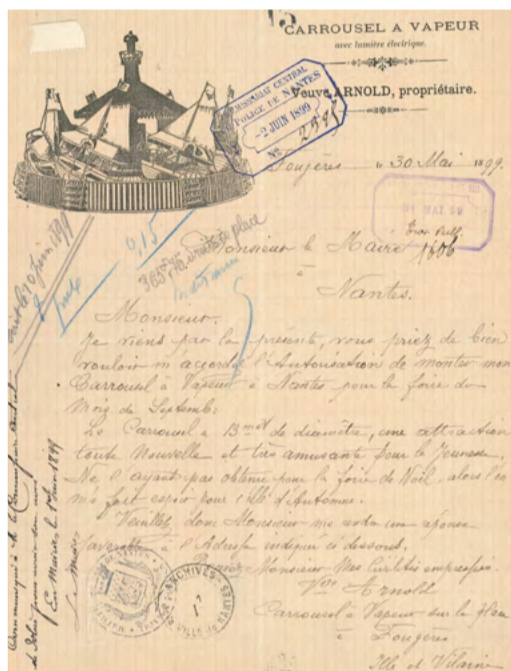 CARROUSEL A VAPEUR
avec lumière électrique.
Veuve ARNOLD, propriétaire.
COMMISSARIAT CENTRAL
POLICE DE NANTES
-2 JUIN 1899
No 259
Fougères le 30 Mai 1899.
31 MAI 99
1606
0,15
365 droits de place
Monsieur le Maire
à
Nantes.
Monsieur.
Je viens par la présente, vous priez de bien
vouloir m'accorder l'Autorisation de monter mon
Carrousel à Vapeur à Nantes pour la foire du
Mois de Septembre
Le Carrousel a 13 mèt de diamètre, une attraction
toute Nouvelle et très amusante pour la Jeunesse.
Ne l'ayant pas obtenue pour la foire de Noël, alors l'on
m'a fait espoir pour celle d'Automne.
Veuillez donc Monsieur me rendre une réponse
favorable à l'Adresse indiqué ci dessous.
Monsieur Mes Civilités empressées.
Vve Arnold
Carrousel à Vapeur sur la place
à Fougères
Ille et Vilaine
Communiqué à M. le Commissaire Central
de Police pour avoir son avis
En Mairie, le 1er Juin 1899
Le Maire
ARCHIVES
NANTES